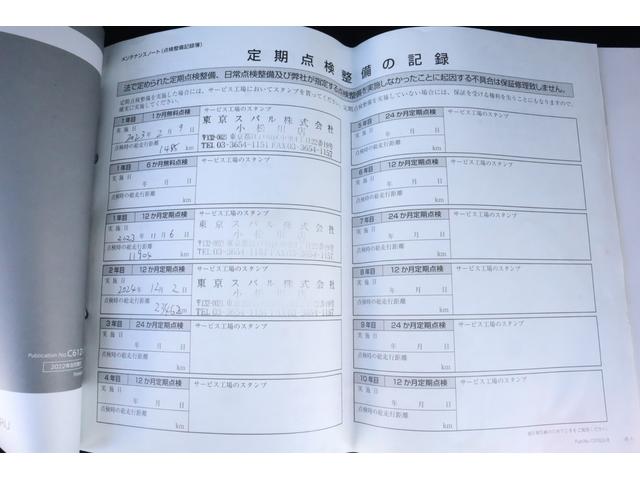 メンテナンスノート(点検整備記録簿)
定期点検整備の記録
法で定められた定期点検整備、日常点検整備及び弊社が指定する点検整備を実施しなかったことに起因する不具合は保証修理致しません。
定期点検整備を実施した場合には、サービス工場においてスタンプを買ってください。
確実に実施してください。
1年目 1か月無料点検 サービス工場のスタンプ
実施日 2023年2月9日
東京スバル株式会社
小松川店
TEL 03-3654-1151 FAX 03-3654-1157
点検時の総走行距離
1485 km
1年目 6か月無料点検 サービス工場のスタンプ
実施日 年 月 日
点検時の総走行距離
km
1年目 12か月定期点検 サービス工場のスタンプ
実施日 2023年11月6日
東京スバル株式会社
小松川店
TEL 03-3654-1151 FAX 03-3654-1157
点検時の総走行距離
km
2年目 12か月定期点検 サービス工場のスタンプ
実施日 2024年12月2日
東京スバル株式会社
小松川店
TEL 03-3654-1151 FAX 03-3654-1157
点検時の総走行距離
km
3年目 24か月定期点検 サービス工場のスタンプ
実施日 年 月 日
点検時の総走行距離
km
4年目 12か月定期点検 サービス工場のスタンプ
実施日 年 月 日
点検時の総走行距離
km
5年目 24か月定期点検 サービス工場のスタンプ
実施日 年 月 日
点検時の総走行距離
km
6年目 12か月定期点検 サービス工場のスタンプ
実施日 年 月 日
点検時の総走行距離
km
7年目 24か月定期点検 サービス工場のスタンプ
実施日 年 月 日
点検時の総走行距離
km
8年目 12か月定期点検 サービス工場のスタンプ
実施日 年 月 日
点検時の総走行距離
km
9年目 24か月定期点検 サービス工場のスタンプ
実施日 年 月 日
点検時の総走行距離
km
10年目 12か月定期点検 サービス工場のスタンプ
実施日 年 月 日
点検時の総走行距離
km
Publication No.